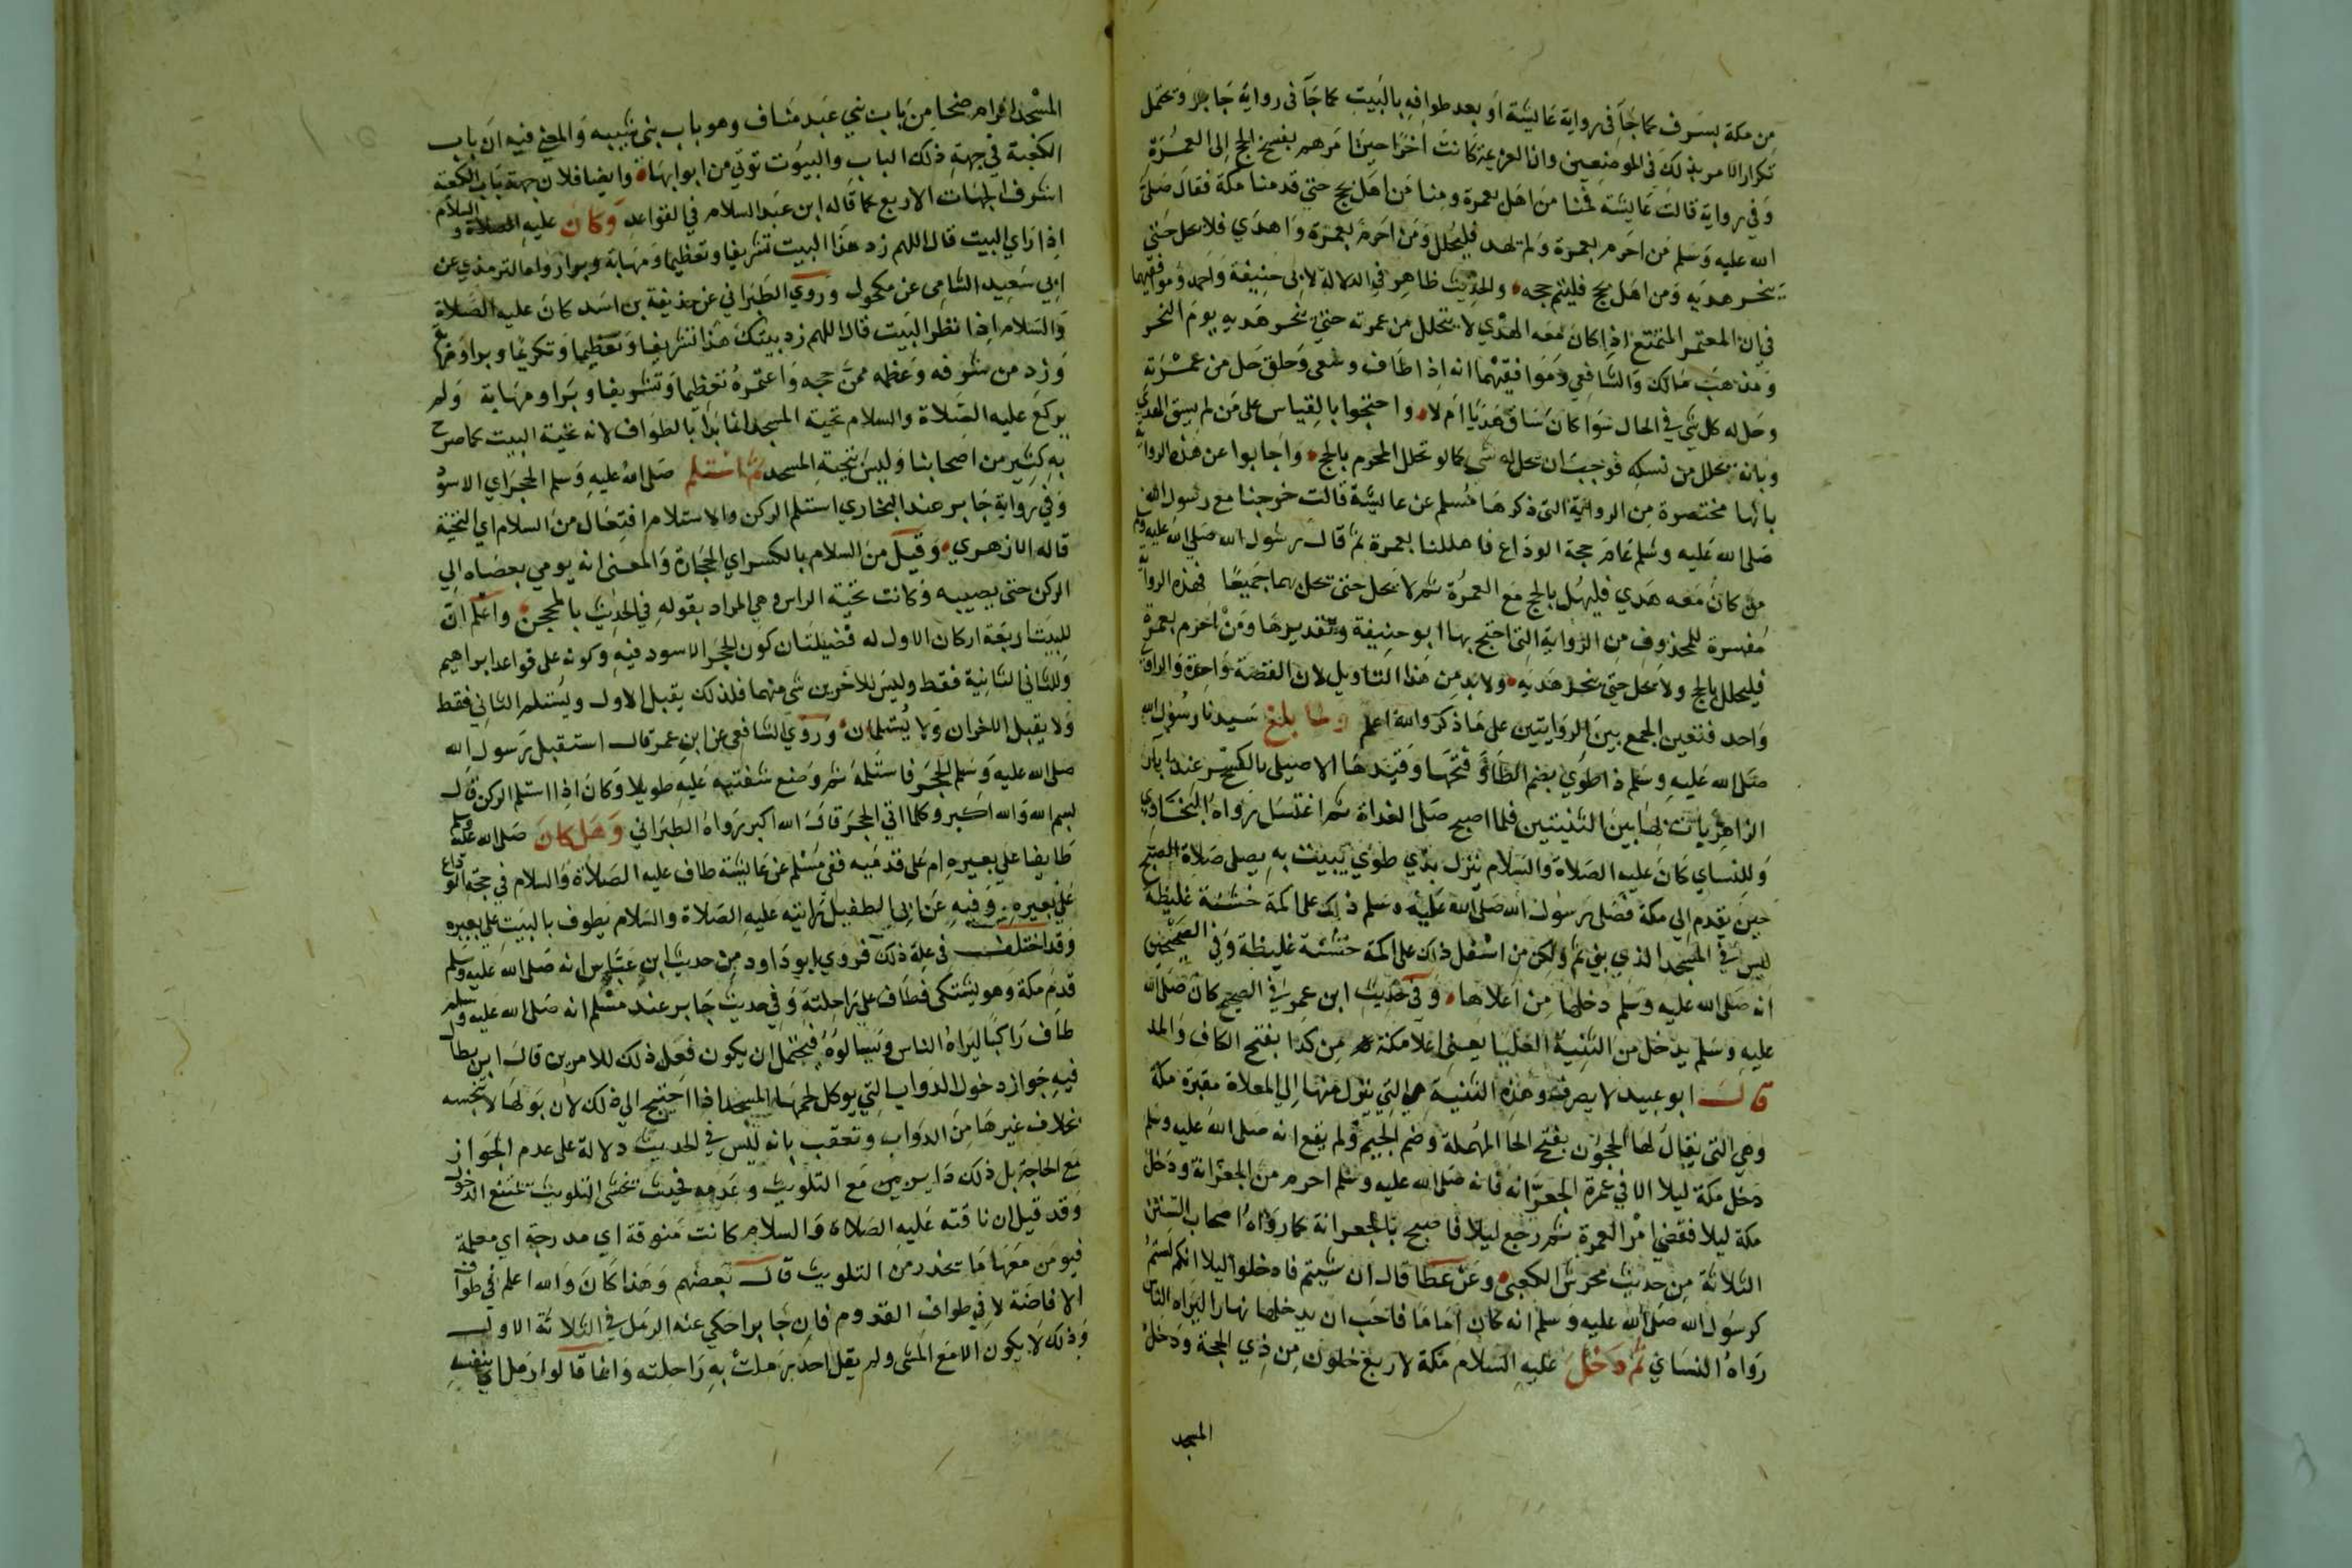 من مكة بسرف كما جآ فى رواية عايشة او بعد طوافه بالبيت كما جآ فى رواية جابر وتحتمل
تكرار الامر بذلك فى الموضعين وان العزيمة كانت اخرا حين امرهم بفسخ الحج الى العمرة
وفى رواية قالت عايشة فمنا من اهل بعمرة ومنا من اهل بحج حتى قدمنا مكة فقال صلى
الله عليه وسلم من احرم بعمرة ولم يهد فليحلل ومن احرم بعمرة واهدي فلا يحل حتى
ينحر هديه ومن اهل بحج فليتم حجه والحديث ظاهر فى الدلالة لابى حنيفة واحمد وموافقيهما
فى ان المعتمر المتمتع اذا كان معه الهدي لا يتحلل من عمرته حتى ينحر هديه يوم النحر
ومذهب مالك والشافعى وموافقيهما انه اذا طاف وسعى وحلق حل من عمرته
وحل له كل شى فى الحال سوا كان ساق هديا ام لا واحتجوا بالقياس على من لم يسق الهدي
وبانه تحلل من نسكه فوجب ان يحل له شى كما لو تحلل المحرم بالحج واجابوا عن هذه الرواية
بانها مختصرة من الرواية التى ذكرها مسلم عن عايشة قالت خرجنا مع رسول الله
صلى الله عليه وسلم عام حجة الوداع فاهللنا بعمرة ثم قال رسول الله صلى الله عليه وسلم
من كان معه هدي فليهل بالحج مع العمرة ثم لا يحل حتى يحل بهما جميعا فهذه الرواية
مفسرة للمحذوف من الرواية التى احتج بها ابو حنيفة وتقديرها ومن احرم بعمرة
فليهلل بالحج ولا يحل حتى ينحر هديه ولا بد من هذا التاويل لان القصة واحدة والراوى
واحد فتعين الجمع بين الروايتين على ما ذكر والله اعلم ولما بلغ سيدنا رسول الله
صلى الله عليه وسلم ذا طوي بضم الطآ وفتحها وقيدها الاصيلى بالكسر عند ابار
الزاهر بات بها بين الثنيتين فلما اصبح صلى الغداة ثم اغتسل رواه البخاري
وللنساي كان عليه الصلاة والسلام ينزل بذي طوي يبيت به يصلى صلاة الصبح
حين يقدم الى مكة فصلى رسول الله صلى الله عليه وسلم ذلك على اكمة خشنة غليظة
ليس فى المسجد الذي بنى ثم ولكن من اسفل ذلك على اكمة خشنة غليظة وفى الصحيحين
انه صلى الله عليه وسلم دخلها من اعلاها وفى حديث ابن عمر فى الصحيح كان صلى الله
عليه وسلم يدخل من الثنية العليا يعنى اعلا مكة من كدا بفتح الكاف والمد
قال ابو عبيد لا يصرف وهذه الثنية هى التى ينزل منها الى المعلاة مقبرة مكة
وهى التى يقال لها الحجون بفتح الحا المهملة وضم الجيم ولم يقع انه صلى الله عليه وسلم
دخل مكة ليلا الا فى عمرة الجعرانة فانه صلى الله عليه وسلم احرم من الجعرانة ودخل
مكة ليلا فقضى امر العمرة ثم رجع ليلا فاصبح بالجعرانة كما رواه اصحاب السنن
الثلاثة من حديث محرش الكعبى وعن عطا قال ان شيتم فادخلوا ليلا انكم لستم
كرسول الله صلى الله عليه وسلم انه كان اماما فاحب ان يدخلها نهارا ليراه الناس
رواه النساي ثم دخل عليه السلام مكة لاربع خلون من ذي الحجة ودخل
المسجد
المسجد الحرام ضحا من باب بني عبد مناف وهو باب بنى شيبه والمعنى فيه ان باب
الكعبة في جهة ذلك الباب والبيوت توتي من ابوابها وايضا فلان جهة باب الكعبه
اشرف الجهات الاربع كما قاله ابن عبد السلام في القواعد وكان عليه الصلاة والسلام
اذا راي البيت قال اللهم زد هذا البيت تشريفا وتعظيما ومهابة وبرا رواه الترمذي عن
ابي سعيد الشامى عن مكحول وروي الطبراني عن حذيفة بن اسد كان عليه الصلاة
والسلام اذا نظر البيت قال اللهم زد بيتك هذا تشريفا وتعظيما وتكريما وبرا ومهابة
وزد من شرفه وعظمه ممن حجه واعتمره تعظيما وتشريفا وبرا ومهابة ولم
يركع عليه الصلاة والسلام تحية المسجد انما بدا بالطواف لانه تحية البيت كما صرح
به كثير من اصحابنا وليس تحية المسجد ثم استلم صلى الله عليه وسلم الحجر اي الاسود
وفي رواية جابر عند البخاري استلم الركن والاستلام افتعال من السلام اي التحية
قاله الازهري وقيل من السلام بالكسر اي الحجارة والمعنى انه يومي بعصاه الى
الركن حتى يصيبه وكانت تحية الراس وهى المراد بقوله في الحديث بالمحجن واعلم ان
للبيت اربعة اركان الاول له فضيلتان كون الحجر الاسود فيه وكونه على قواعد ابراهيم
وللثاني الثانية فقط وليس للاخرين شى منهما فلذلك يقبل الاول ويستلم الثاني فقط
ولا يقبل الاخران ولا يستلمان وروي الشافعى عن ابن عمر قال استقبل رسول الله
صلى الله عليه وسلم الحجر فاستلمه ثم وضع شفتيه عليه طويلا وكان اذا استلم الركن قال
بسم الله والله اكبر وكلما اتى الحجر قال الله اكبر رواه الطبراني وهل كان صلى الله عليه وسلم
طايفا على بعيره ام على قدميه ففى مسلم عن عايشة طاف عليه الصلاة والسلام في حجة الوداع
على بعيره وفيه عن ابى الطفيل رايته عليه الصلاة والسلام يطوف بالبيت على بعيره
وقد اختلف فى علة ذلك فروي ابو داود من حديث ابن عباس انه صلى الله عليه وسلم
قدم مكة وهو يشتكى فطاف على راحلته وفي حديث جابر عند مسلم انه صلى الله عليه وسلم
طاف راكبا ليراه الناس وليسالوه فيحتمل ان يكون فعل ذلك للامرين قال ابن بطال
فيه جواز دخول الدواب التي يوكل لحمها المسجد اذا احتيج الى ذلك لان بولها لا ينجسه
بخلاف غيرها من الدواب وتعقب بانه ليس في الحديث دلالة على عدم الجواز
مع الحاجة بل ذلك داير بين مع التلويث وعدمه فحيث يخشى التلويث يمتنع الدخول
وقد قيل ان ناقته عليه الصلاة والسلام كانت منوقة اي مدرجة اي معلمة
فيومن معها ما يحذر من التلويث قال بعضهم وهذا كان والله اعلم في طواف
الافاضة لا في طواف القدوم فان جابرا حكي عنه الرمل في الثلاثة الاول
وذلك لا يكون الا مع المشى ولم يقل احد رملت به راحلته وانما قالوا رمل اي بنفسه